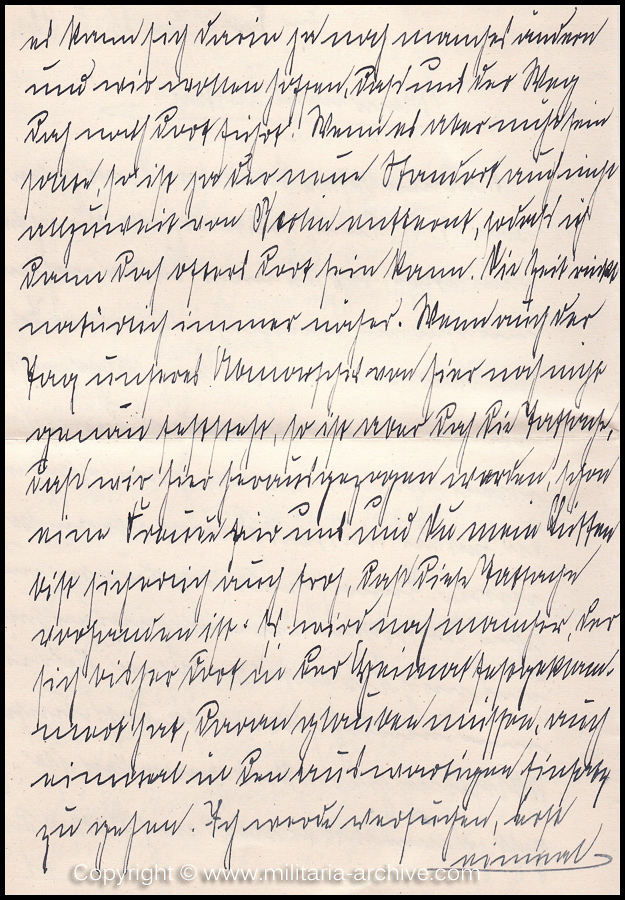 es kann sich darin ja noch manches ändern
und wir wollen hoffen, daß uns der Weg
doch noch dort führt. Wenn es aber nicht sein
sollte, so ist ja der neue Standort auch nicht
allzuweit von Berlin entfernt, sodaß ich
dann doch öfters dort sein kann. Die Zeit rückt
natürlich immer näher. Wenn auch der
Tag unseres Abmarsches von hier noch nicht
genau feststeht, so ist aber doch die Tatsache,
daß wir hier herausgezogen werden, schon
eine Freude für uns und Du mein
bist sicherlich auch froh, daß diese Tatsache
vorhanden ist. Es wird noch mancher, der
sich bisher dort in der Heimat festgeklam-
mert hat, daran glauben müssen, auch
einmal in den auswärtigen Einsatz
zu gehen. Ich werde versuchen, erst
einmal
Copyright © www.militaria-archive.com